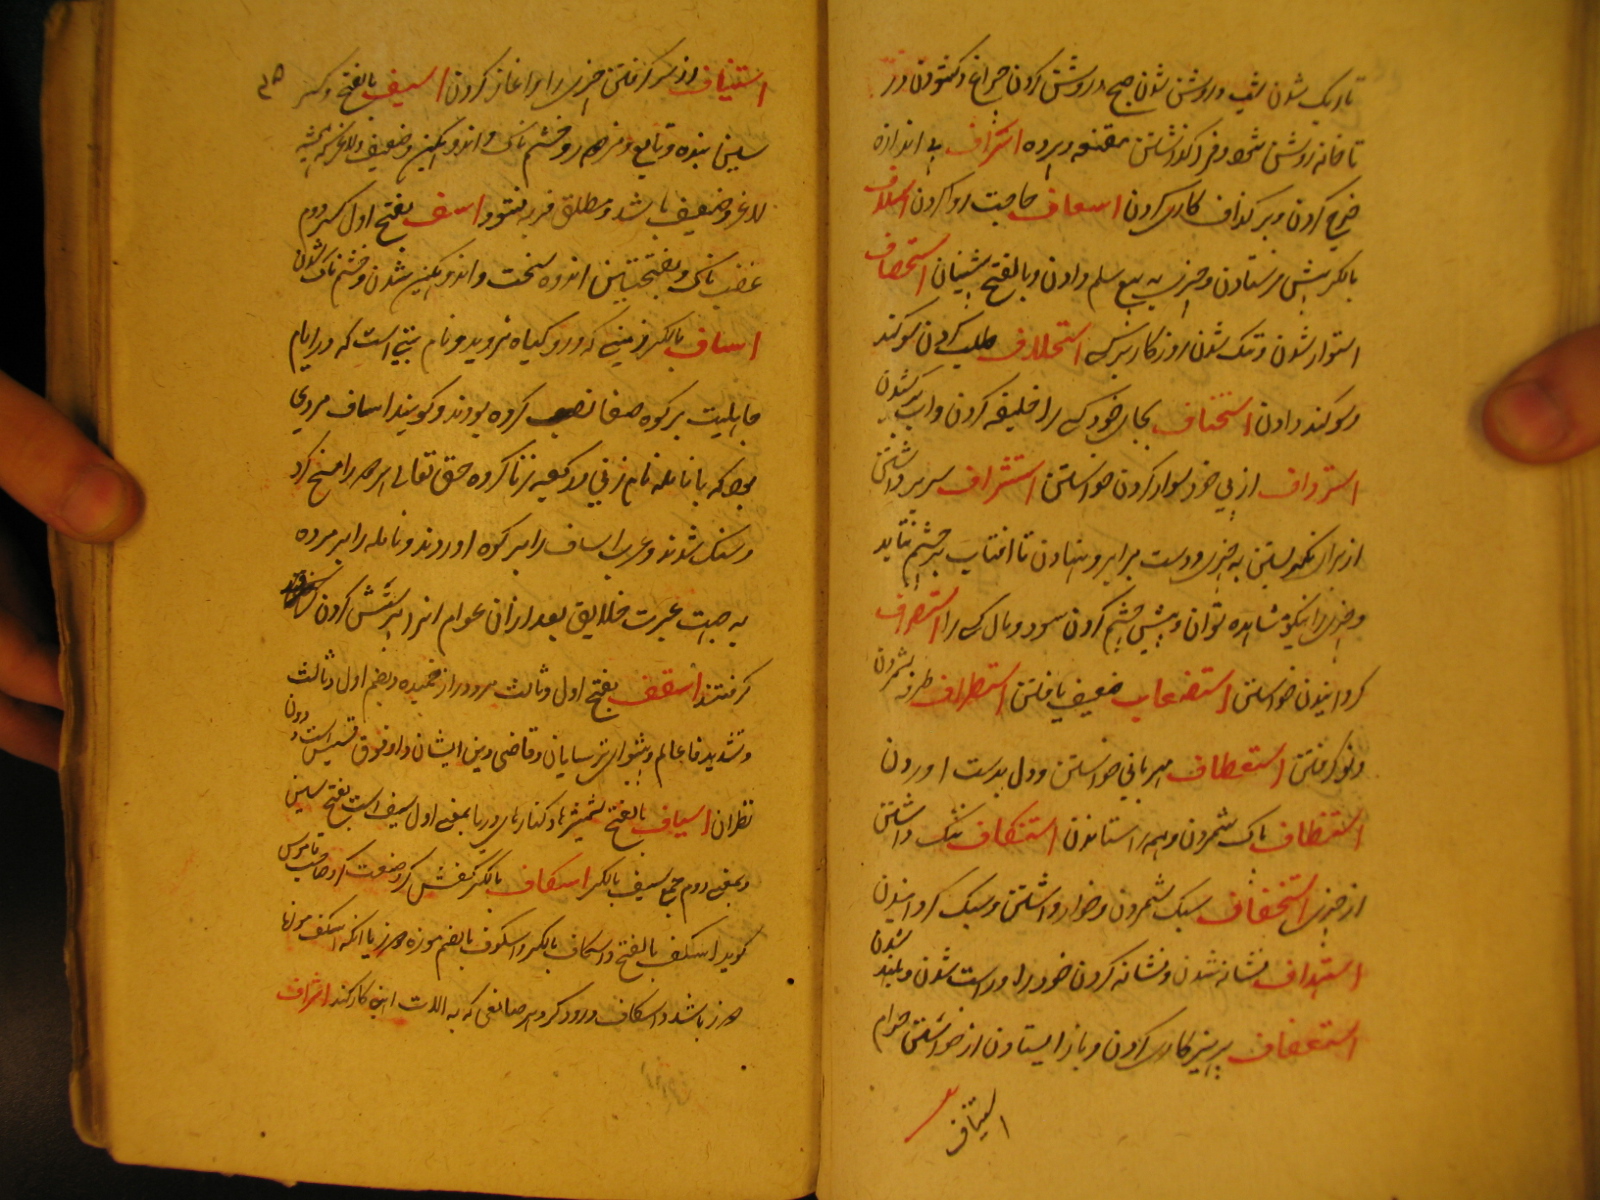 تاریک شدن شب و روشن شدن صبح و روشن کردن چراغ و کشودن در
تا خانه روشن شود و فرو گذاشتن مقنعه و پرده اشراف بی اندازه
خرج کردن و بر گذاف کاری کردن اسعاف حاجت روا کردن اسلاف
بالکسر پیش فرستادن و چیزی به بیع سلم دادن و بالفتح پیشینان استحصاف
استوار شدن و تنگ شدن روزگار بر کسی استحلاف طلب کردن سوگند
و سوگند دادن استخلاف بجای خود کسی را خلیفه کردن و آب برکشیدن
استرداف از پی خود سوار کردن خواستن استشراف سر برداشتن
از برای نگریستن به چیزی و دست بر ابرو نهادن تا افتاب بر چشم نتابد
و چیزی را نیکو مشاهده توان و پیش چشم کردن سود و مال کسی را استصراف
گردانیدن خواستن استضعاف ضعیف یافتن استطراف طرفه شمردن
و نو گرفتن استعطاف مهربانی خواستن و دل بدست اوردن
استنظاف پاک شمردن و همه را ستاندن استنکاف ننگ داشتن
از چیزی استخفاف سبک شمردن و خوار داشتن و سبک گردانیدن
استهداف نشانه شدن و نشانه کردن خود را و راست شدن و بلند شدن
استعفاف پرهیزکاری کردن و باز ایستادن از خواستن حرام
استیناف
استیناف از سر گرفتن چیزی را و اغاز کردن اسیف بالفتح و کسر
سین بنده و تابع و مزدور و خشم ناک و اندوهگین و ضعیف و لاغر که همیشه
لاغر و ضعیف باشد و مطلق فربه نشود اسف بفتح اول کسر دوم
غضب ناک و بفتحتین اندوه سخت و اندوهگین شدن و خشم ناک شدن
اساف بالکسر زمینی که درو گیاه نروید و نام بتی است که در ایام
جاهلیت بر کوه صفا نصب کرده بودند و گویند اساف مردی
بود که با نائله نام زنی در کعبه زنا کرده حق تعالی هر دو را مسخ کرد
و سنگ شدند و عرب اساف را بر کوه اوردند و نائله را بر مرده
به جهت عبرت خلایق بعد ازان عوام انرا پرستش کردن
گرفتند اسقف بفتح اول و ثالث مرد دراز خمیده و بضم اول و ثالث
و تشدید فا عالم و پیشوای ترسایان و قاضی دین ایشان و او فوق قسیس است و دون
مطران اسیاف بالفتح شمشیرها و کنارهای دریا بمعنی اول سیف است بفتح سین
و بمعنی دوم جمع سیف بالکسر اسکاف بالکسر کفش گر و صنعت او صاحب قاموس
گوید اسکف بالفتح و اسکاف بالکسر و اسکوف بالضم موزه دوز یا انکه اسکف موزه
دوز باشد و اسکاف درودگر و هر صانعی که به الات اهن کار کند اشراف